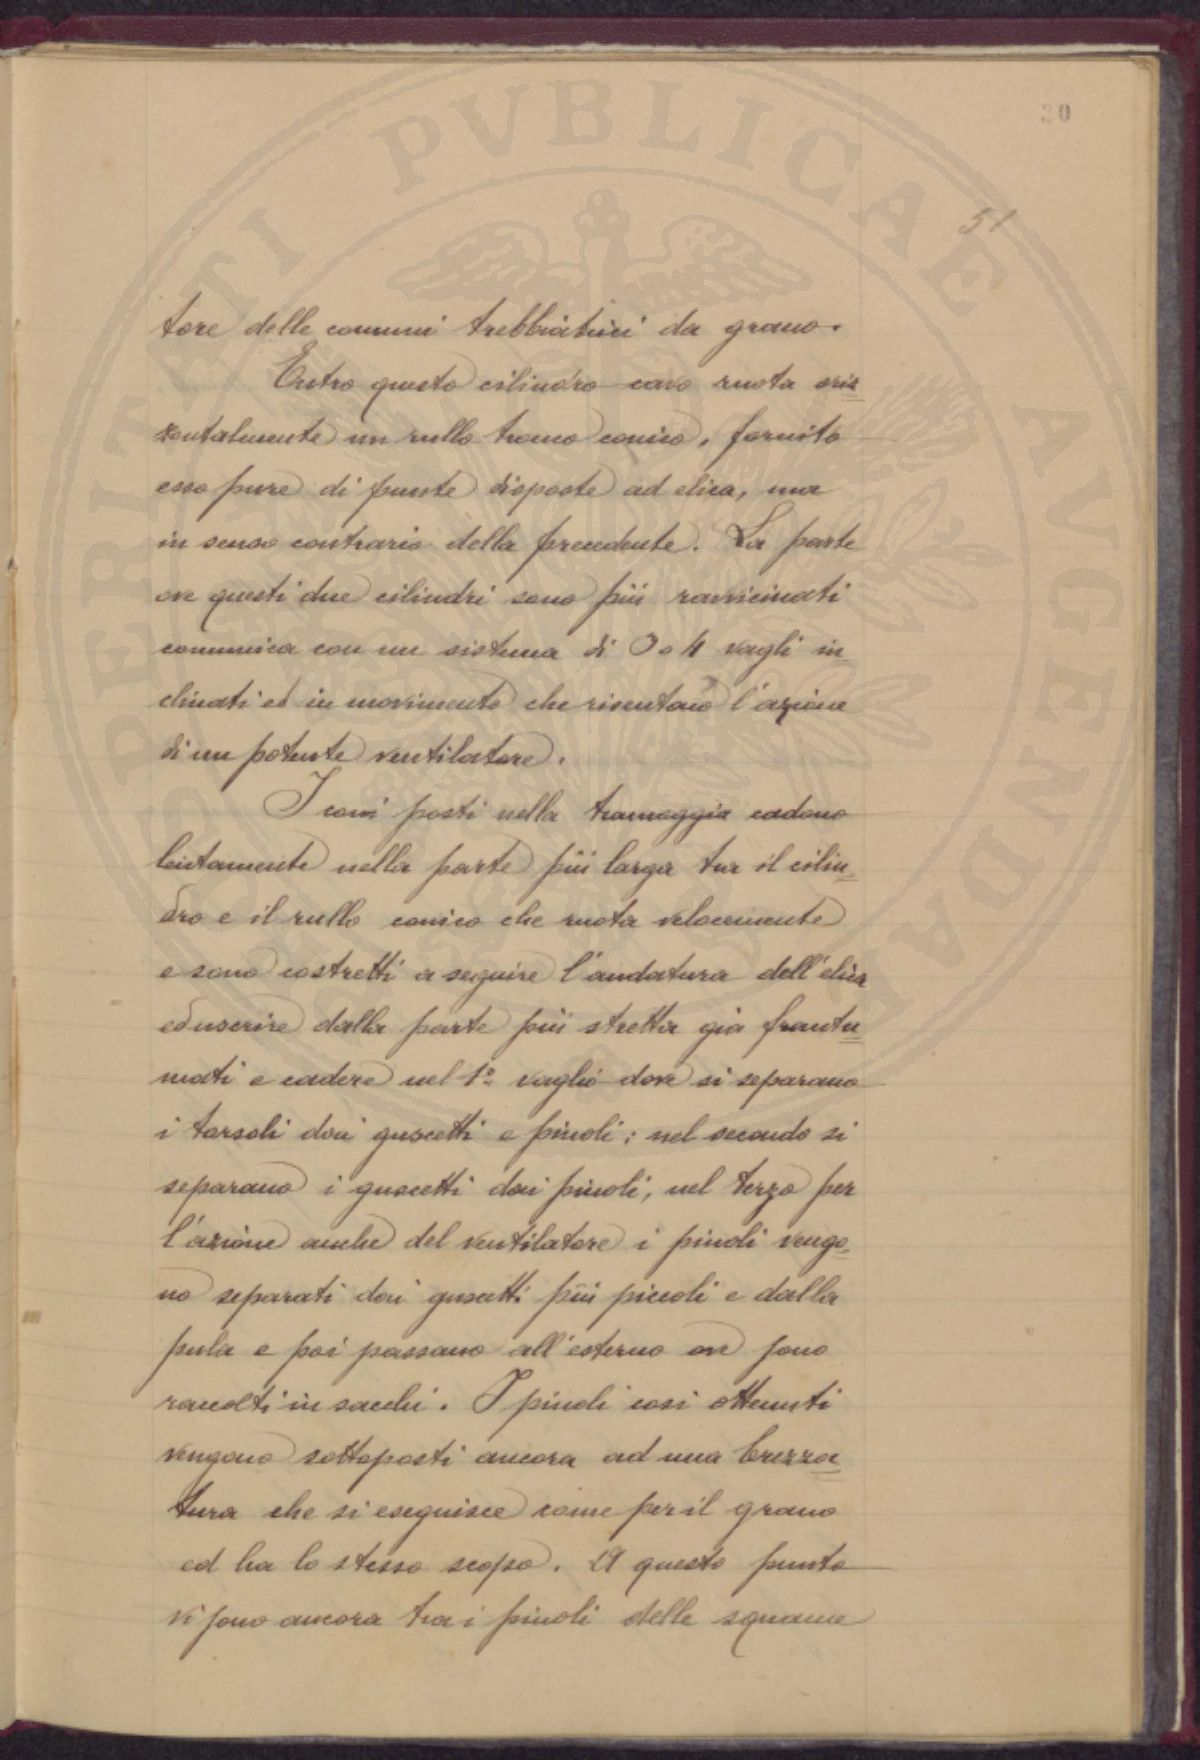 30
51
tore delle comuni trebbiatrici da grano.
Entro questo cilindro cavo ruota oriz
zontalmente un rullo tronco conico, fornito
esso pure di punte disposte ad elica, ma
in senso contrario della precedente. La parte
ove questi due cilindri sono più ravvicinati
comunica con un sistema di 3 o 4 vagli in-
clinati ed in movimento che risentono l'azione
di un potente ventilatore.
I coni posti nella tramoggia cadono
lentamente nella parte più larga tra il cilin-
dro e il rullo conico che ruota velocemente
e sono costretti a seguire l'andatura dell'elica
ed uscire dalla parte più stretta già frantu
mati e cadere nel 1º vaglio dove si separano
i torsoli dai guscetti e pinoli; nel secondo si
separano i guscetti dai pinoli, nel terzo per
l'azione anche del ventilatore i pinoli vengo-
no separati dai guscetti più piccoli e dalla
pula e poi passano all'esterno ove sono
raccolti in sacchi. I pinoli così ottenuti
vengono sottoposti ancora ad una brezza
tura che si eseguisce come per il grano
ed ha lo stesso scopo. A questo punto
vi sono ancora tra i pinoli delle squame
PERITATI PVBLICAE AVGENDAE